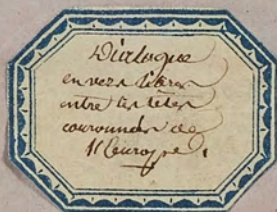 Dialogue
en vers libres
entre les têtes
couronnées de
l'Europe.